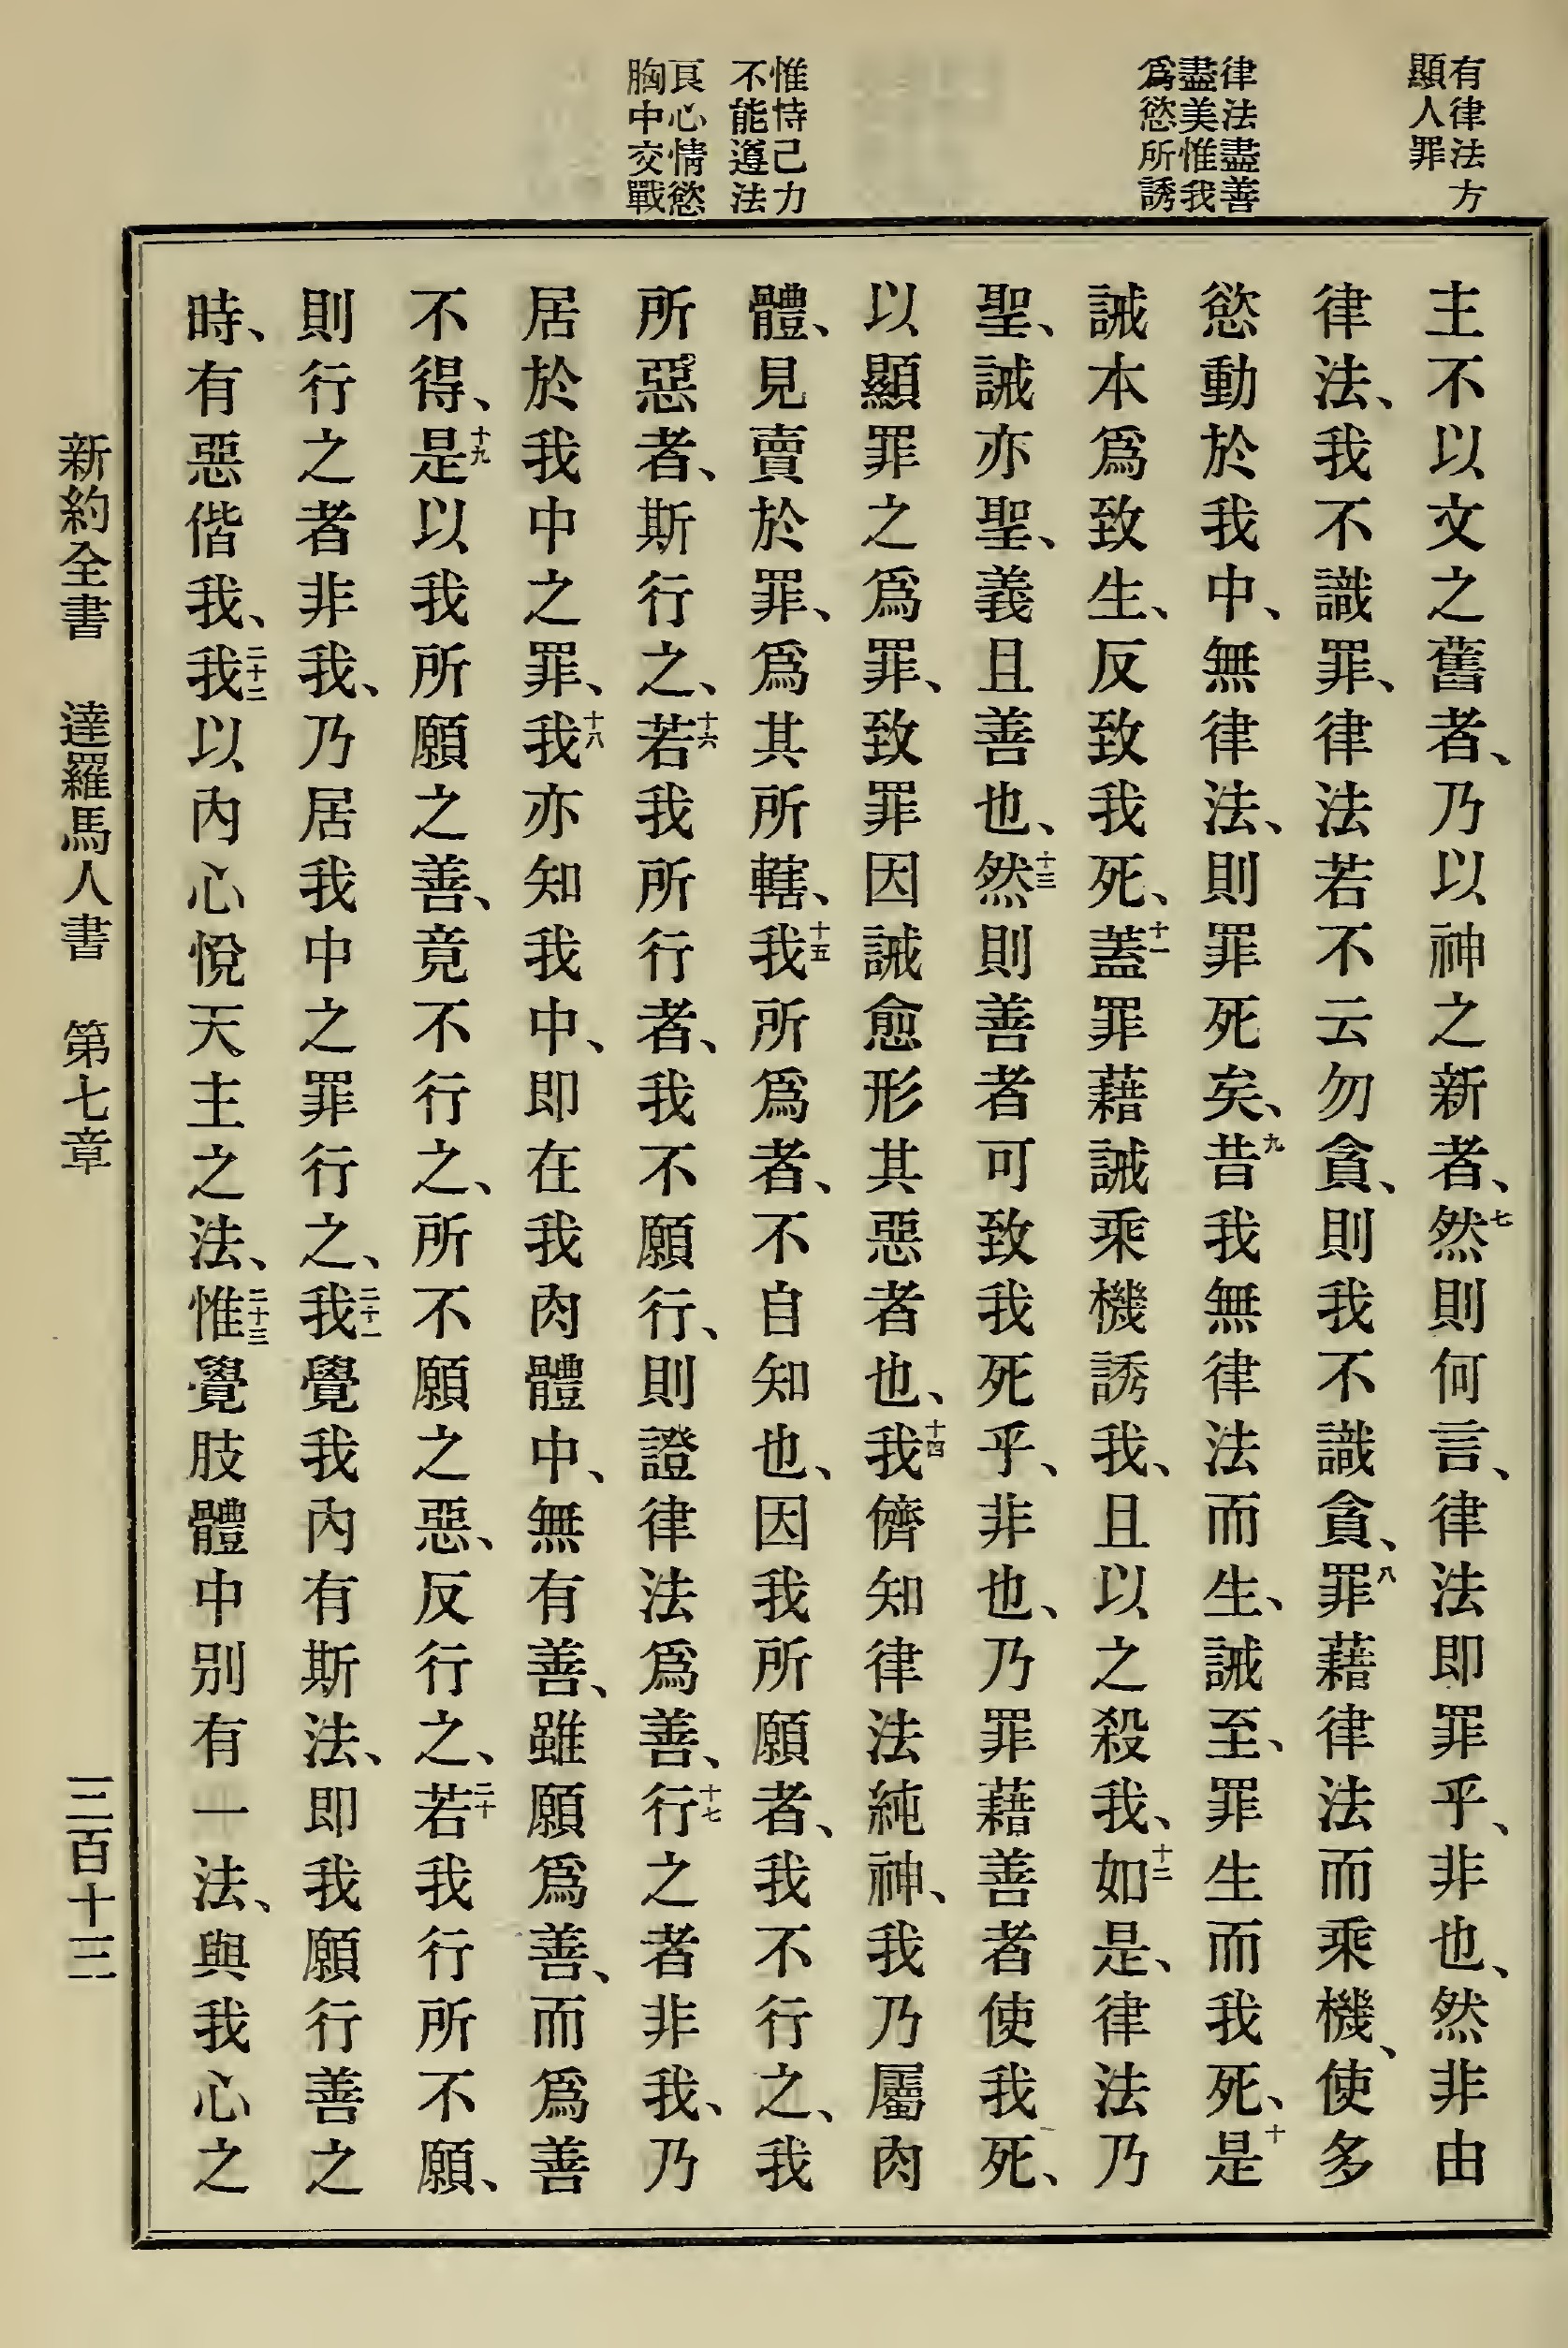 有律法方
顯人罪
律法盡善
盡美惟我
爲慾所誘
惟恃己力
不能遵法
良心情慾
胸中交戰
主不以文之舊者、乃以神之新者、七然則何言、律法即罪乎、非也、然非由
律法、我不識罪、律法若不云勿貪、則我不識貪、八罪藉律法而乘機、使多
慾動於我中、無律法、則罪死矣、九昔我無律法而生、誡至、罪生而我死、十是
誡本爲致生、反致我死、十一蓋罪藉誡乘機誘我、且以之殺我、十二如是、律法乃
聖、誡亦聖、義且善也、十三然則善者可致我死乎、非也、乃罪藉善者使我死、
以顯罪之爲罪、致罪因誡愈形其惡者也、十四我儕知律法純神、我乃屬肉
體、見賣於罪、爲其所轄、十五我所爲者、不自知也、因我所願者、我不行之、我
所惡者、斯行之、十六若我所行者、我不願行、則證律法爲善、十七行之者非我、乃
居於我中之罪、十八我亦知我中、即在我肉體中、無有善、雖願爲善、而爲善
不得、十九是以我所願之善、竟不行之、所不願之惡、反行之、二十若我行所不願、
則行之者非我、乃居我中之罪行之、二十一我覺我內有斯法、即我願行善之
時、有惡偕我、二十二我以內心悅天主之法、二十三惟覺肢體中別有一法、與我心之
新約全書 達羅馬人書 第七章 三百十三